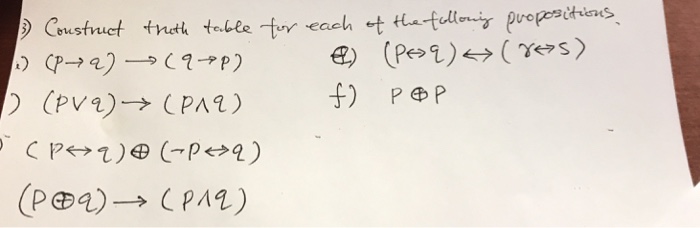 3) Construct truth table for each of the following propositions.
) (P→q) → (q→p)
) (p∨q) → (p∧q)
(p↔q) ⊕ (¬p↔q)
(p⊕q) → (p∧q)
e) (p↔q) ↔ (r↔s)
f) P ⊕ P